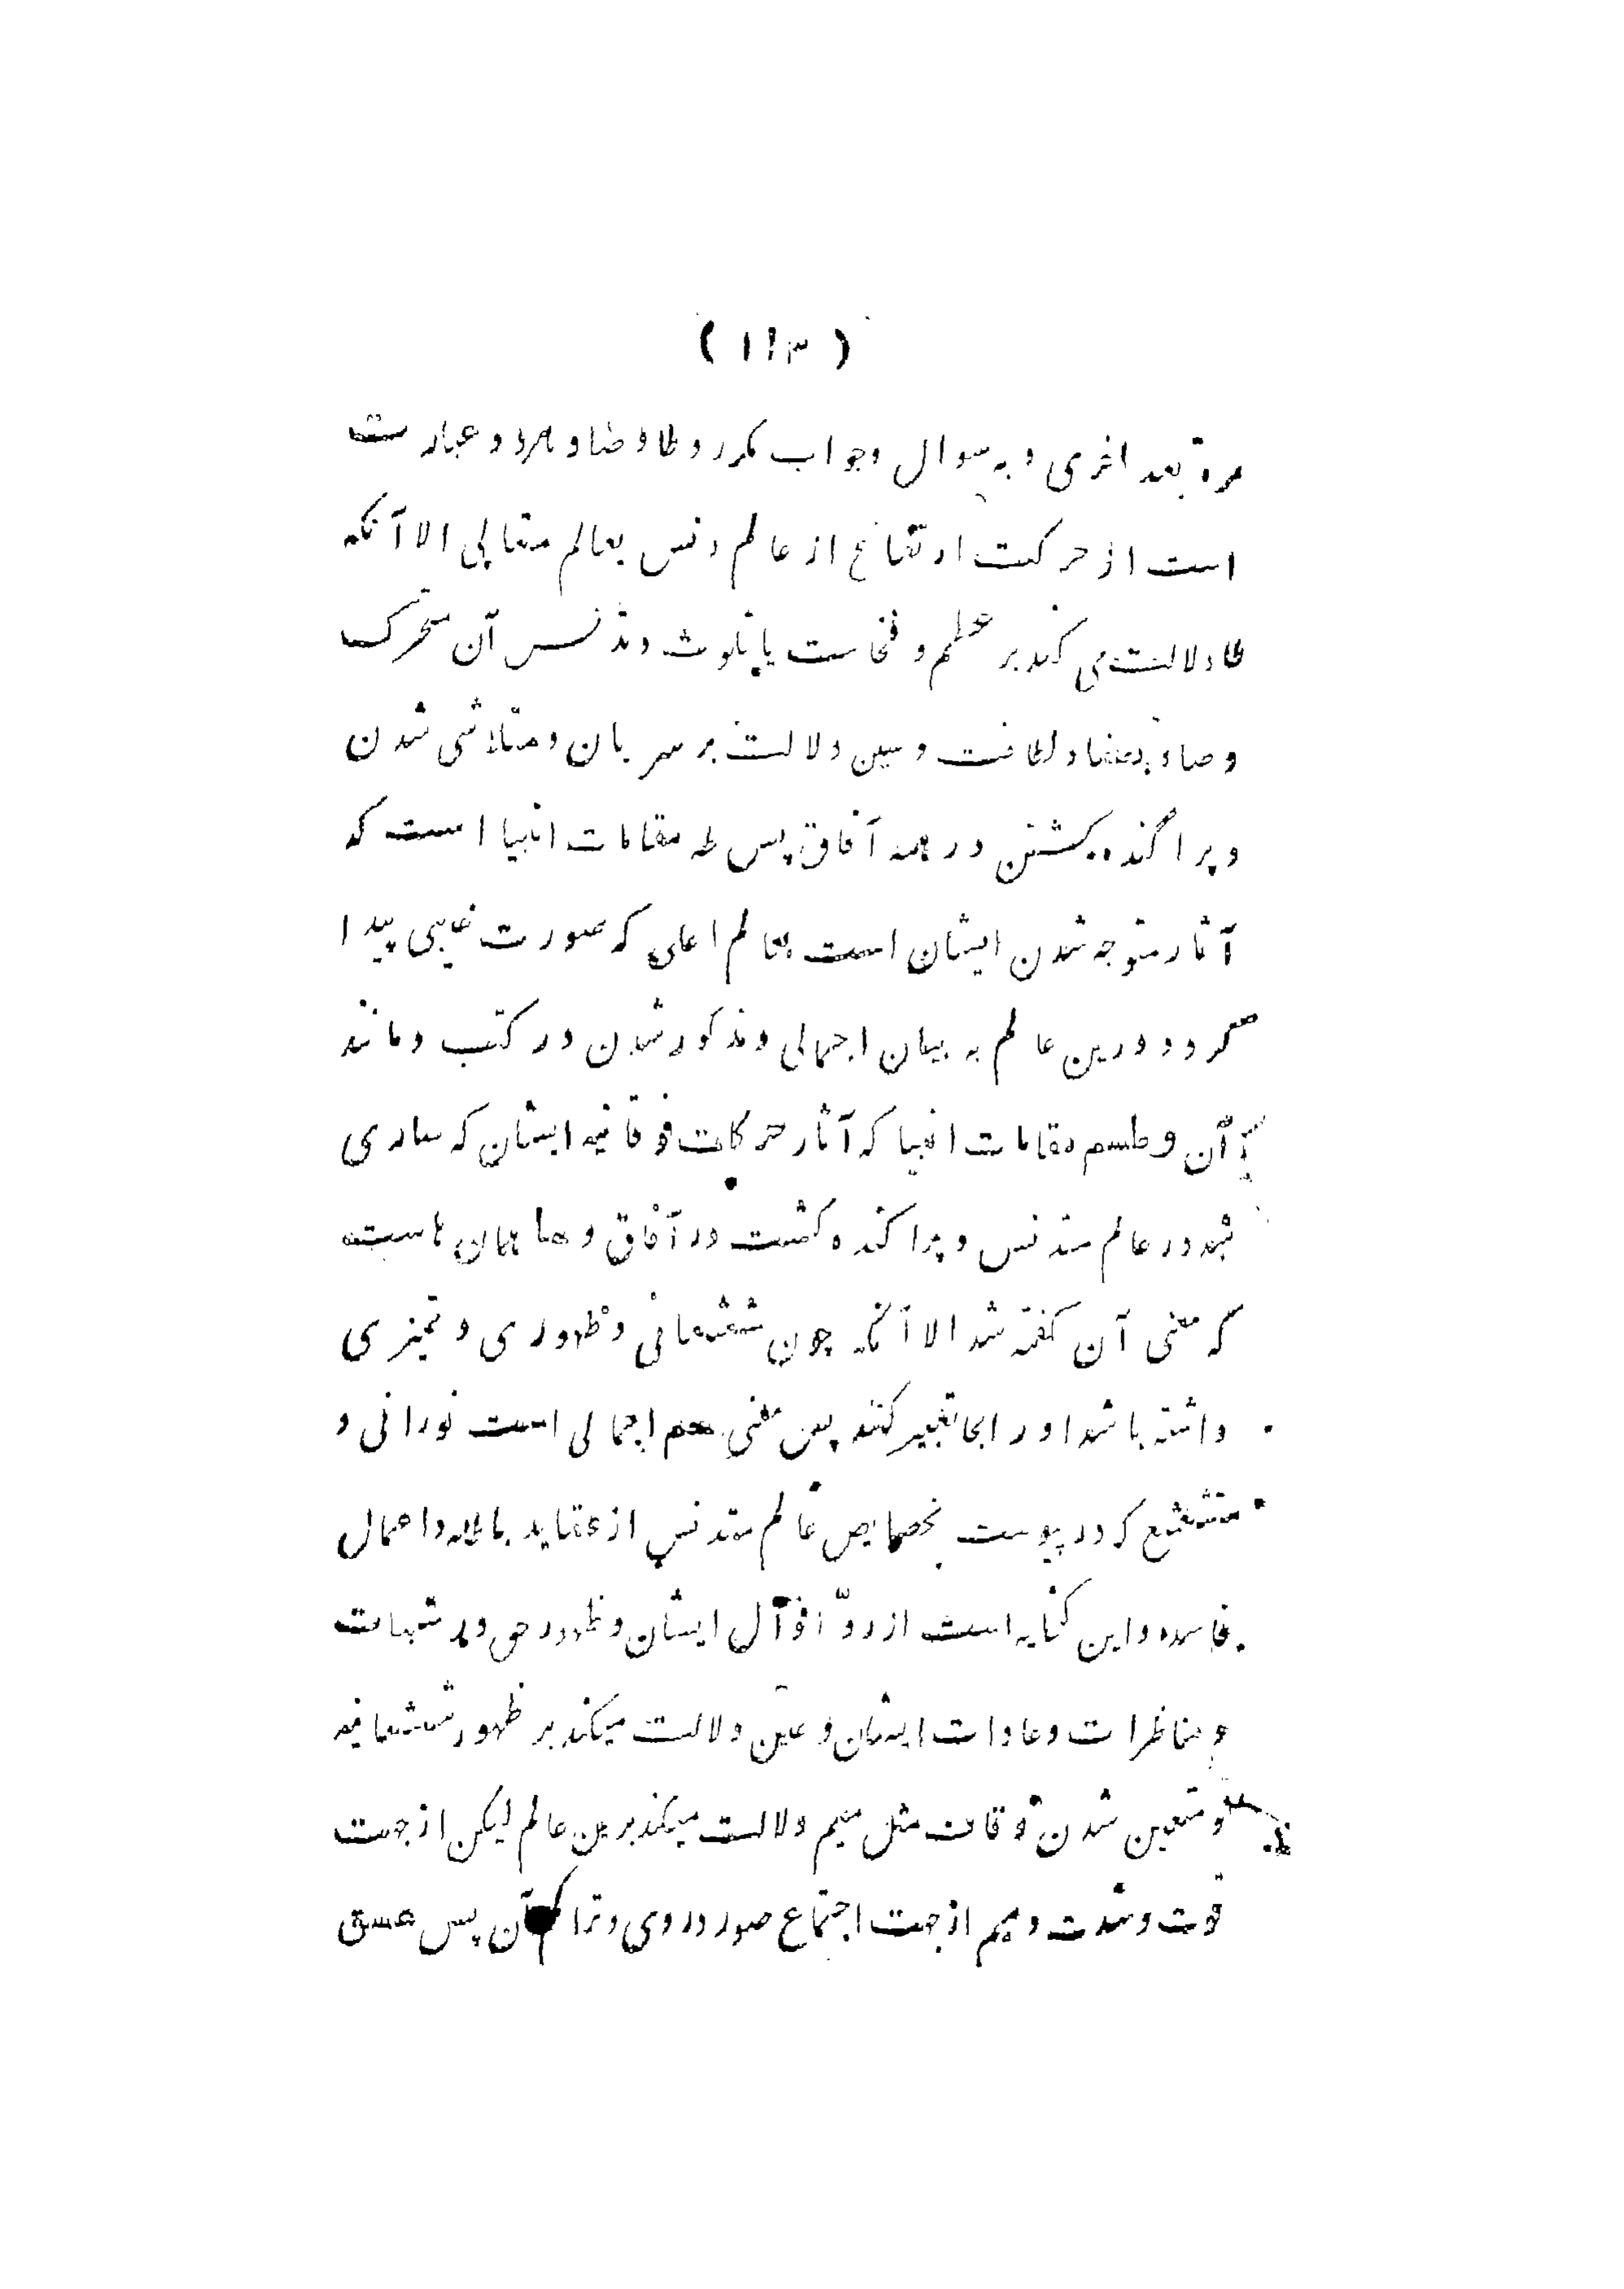 ( ۱۱۳ )
مرة بعد اخری و به سوال وجواب مکرر و طا و ضا و هرد و عبارت
است از حرکت ارتفاع از عالم دنس بعالم متعالی الا آنکه
طا دلالت می کند بر عظم و فخامت یا بتلوث و تدنس آن متحرک
وصاد بصفا و لطافت وسین دلالت بر سریان و متلاشی شدن
و پراگنده گشتن در همه آفاق پس طه مقامات انبیا است که
آثار متوجه شدن ایشان است بعالم اعلی که صورت غایبی پیدا
گردد درین عالم به بیان اجمالی و مذکور شدن در کتب و مانند
آن وطسم مقامات انبیا که آثار حرکات فوقانیه ایشان که ساری
شد در عالم متدنس و پراگنده گشت در آفاق و حا همان ها است
که معنی آن گفته شد الا آنکه چون شعشعانی و ظهوری و تمیزی
داشته باشد اورا بحا تعبیر کنند پس معنی حم اجمالی است نورانی و
متشعشع که در پیوست بخصایص عالم متدنس از عقاید باطله و اعمال
فاسده و این کنایه است از ردّ اقوال ایشان و ظهور حق در شبهات
و مناظرات و عادات ایشان و عین دلالت میکند بر ظهور شعشعانیه
و متعین شدن وقاف مثل میم دلالت میکند برین عالم لیکن از جهت
قوت و شدت و میم از جهت اجتماع صور در وی و تراکم آن پس عسق